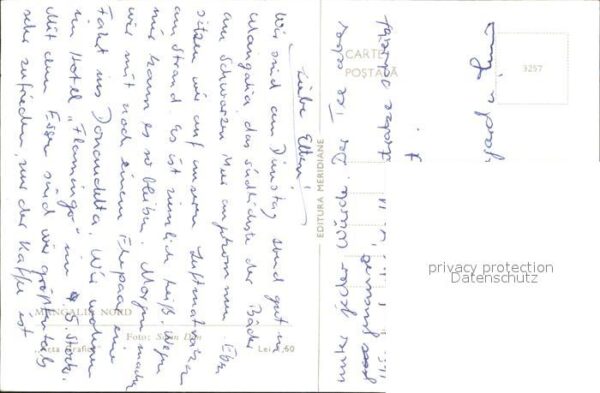 Liebe Eltern!
Wir sind am Dienstag abend gut in
Mangalia das südlichste der Bäder
am Schwarzen Meer angekommen. Eben
sitzen wir auf unseren Luftmatratzen
am Strand. Es ist ziemlich heiß. Wegen
mir kann es so bleiben. Morgen machen
wir mit noch einem Ehepaar eine
Fahrt ins Donaudelta. Wir wohnen
im Hotel "Flamingo" im 5. Stock.
Mit dem Essen sind wir größtenteils
sehr zufrieden, nur der Kaffee ist
unter jeder Würde. Der Tee aber
MANGALIA NORD
Foto:
Lei 1,60
EDITURA MERIDIANE
CARTE
POȘTALĂ
3257
privacy protection
Datenschutz